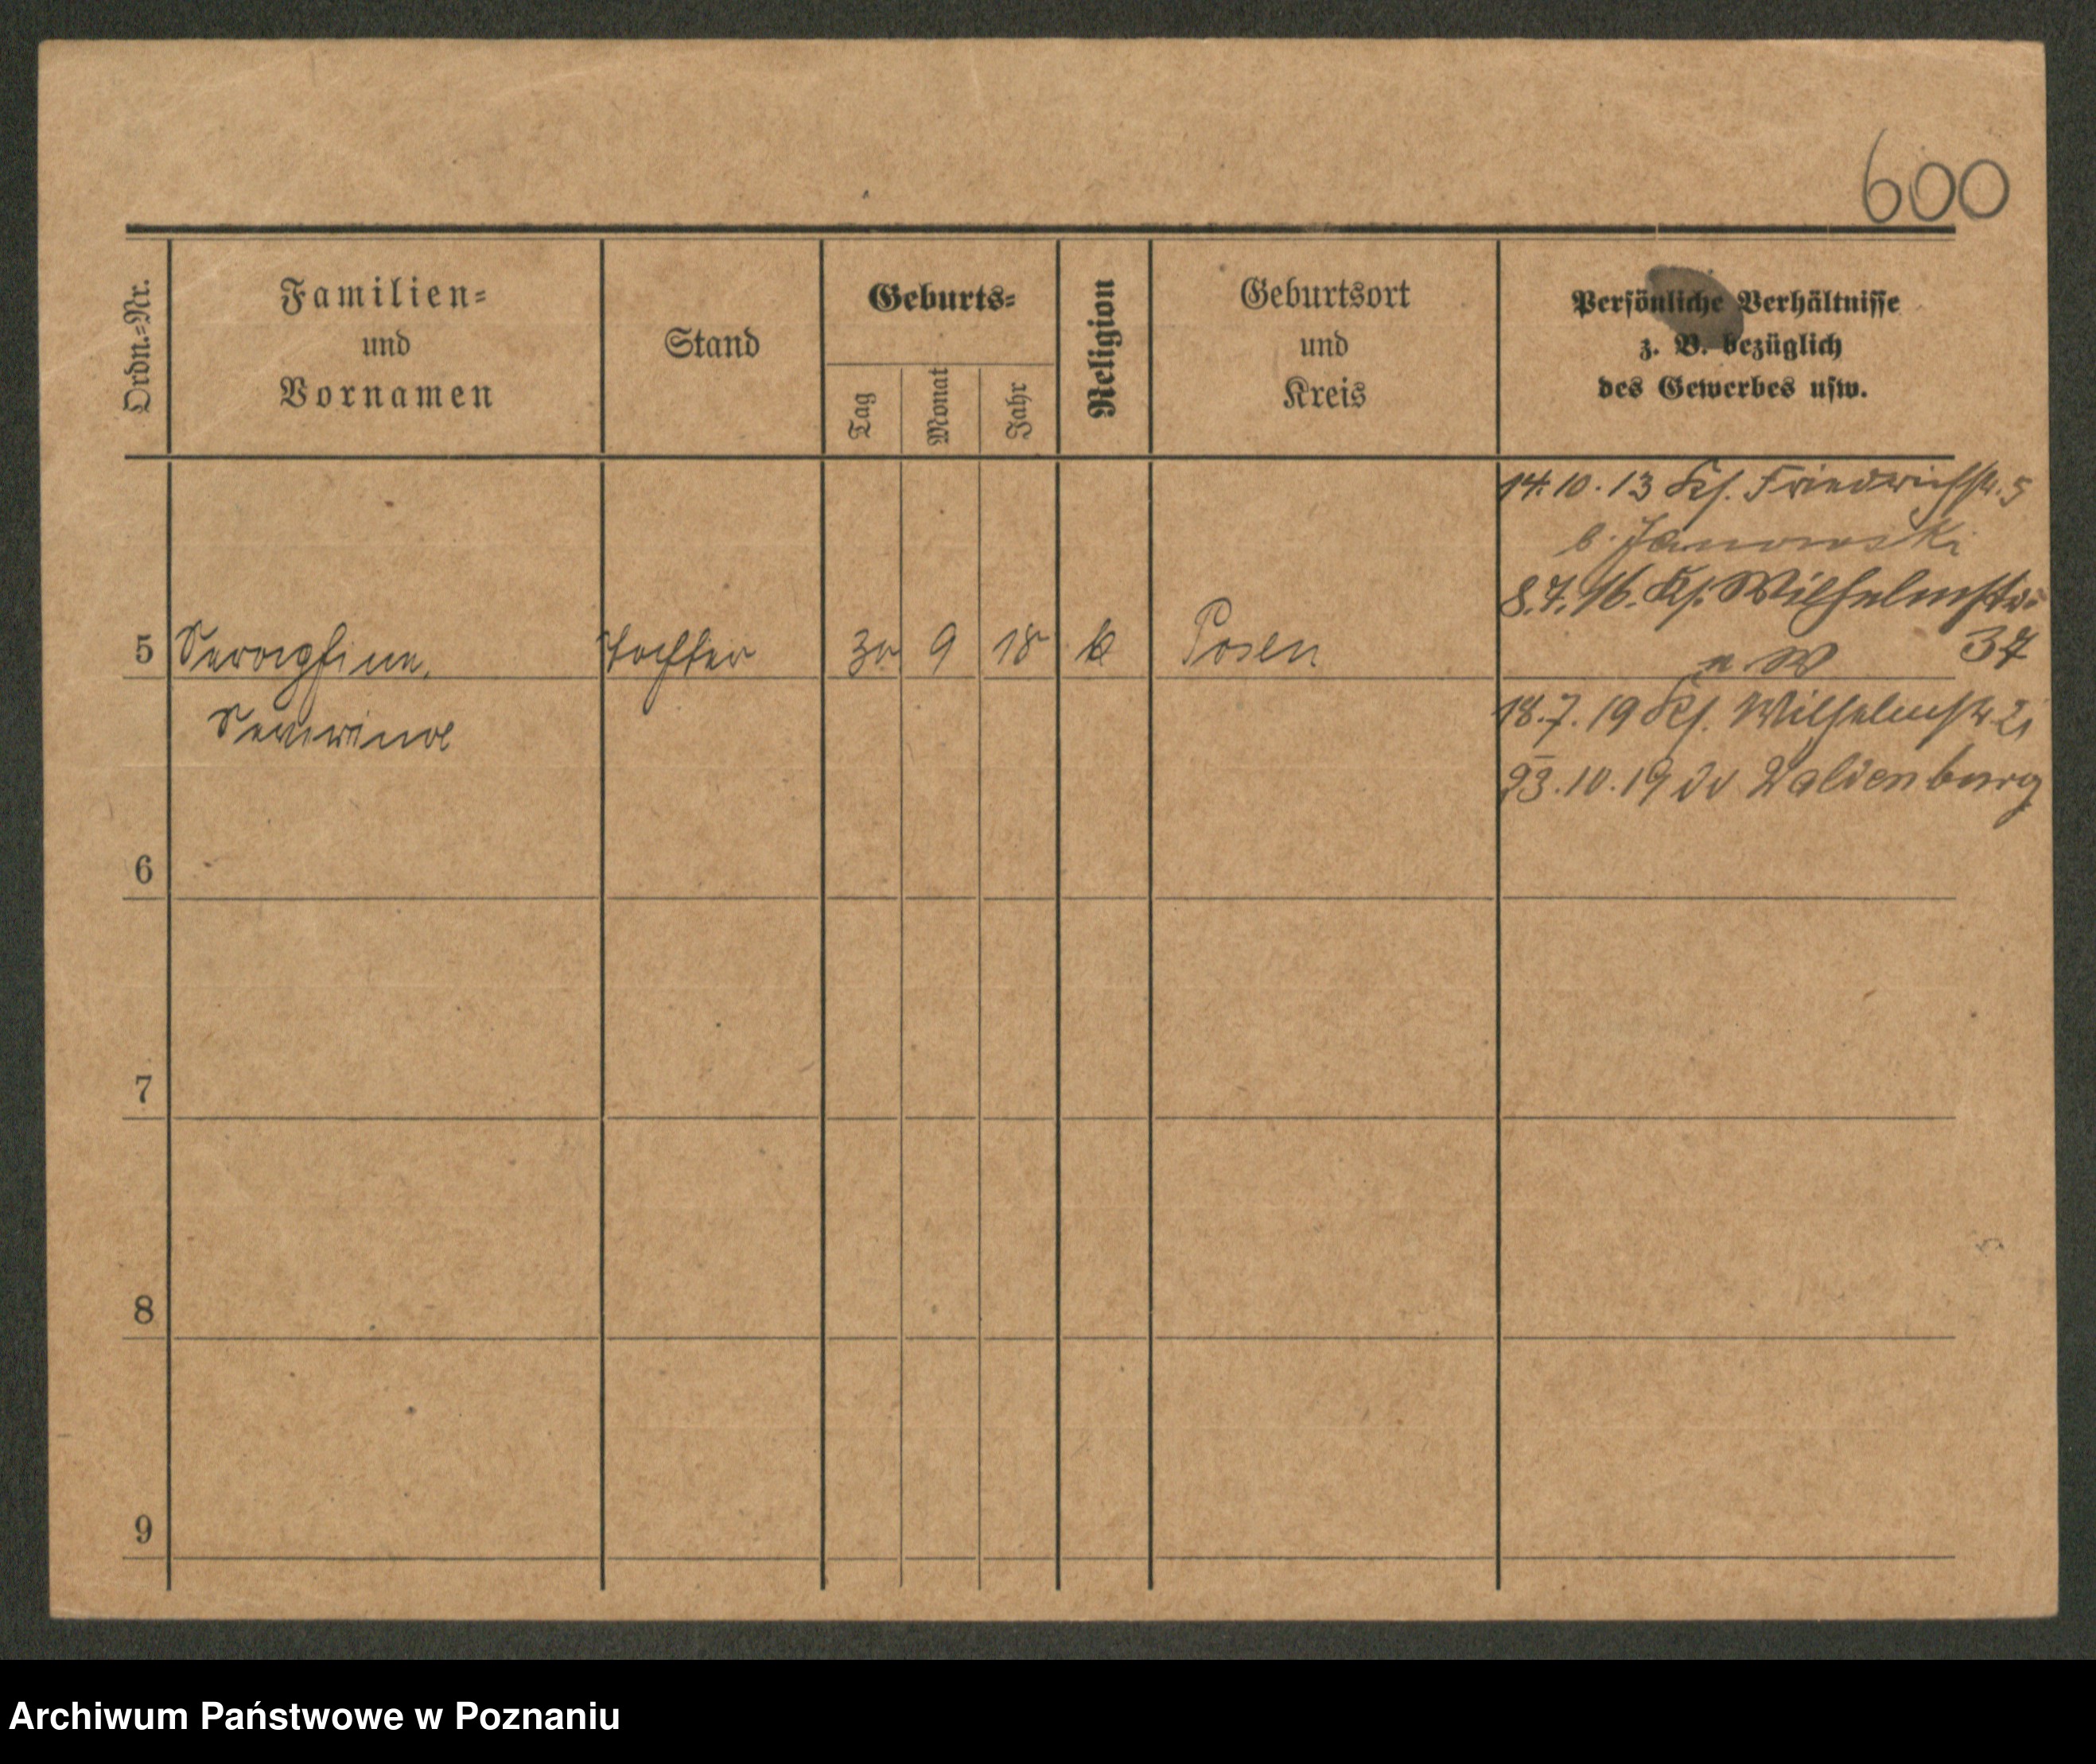 600
Ordn.-Nr.
Familien-
und
Vornamen
Stand
Geburts-
Tag
Monat
Jahr
Religion
Geburtsort
und
Kreis
Persönliche Verhältnisse
z. B. bezüglich
des Gewerbes usw.
14.10.13 Kf. Friedrichstr. 5
b. Janowski
8.7.16. Kf. Wilhelmstr.
37
5 Seraphine, Tochter 30 9 18 k Posen
Severina
18.7.19 Kf. Wilhelmstr. 21
23.10.19 Waldenburg
6
7
8
9
Archiwum Państwowe w Poznaniu